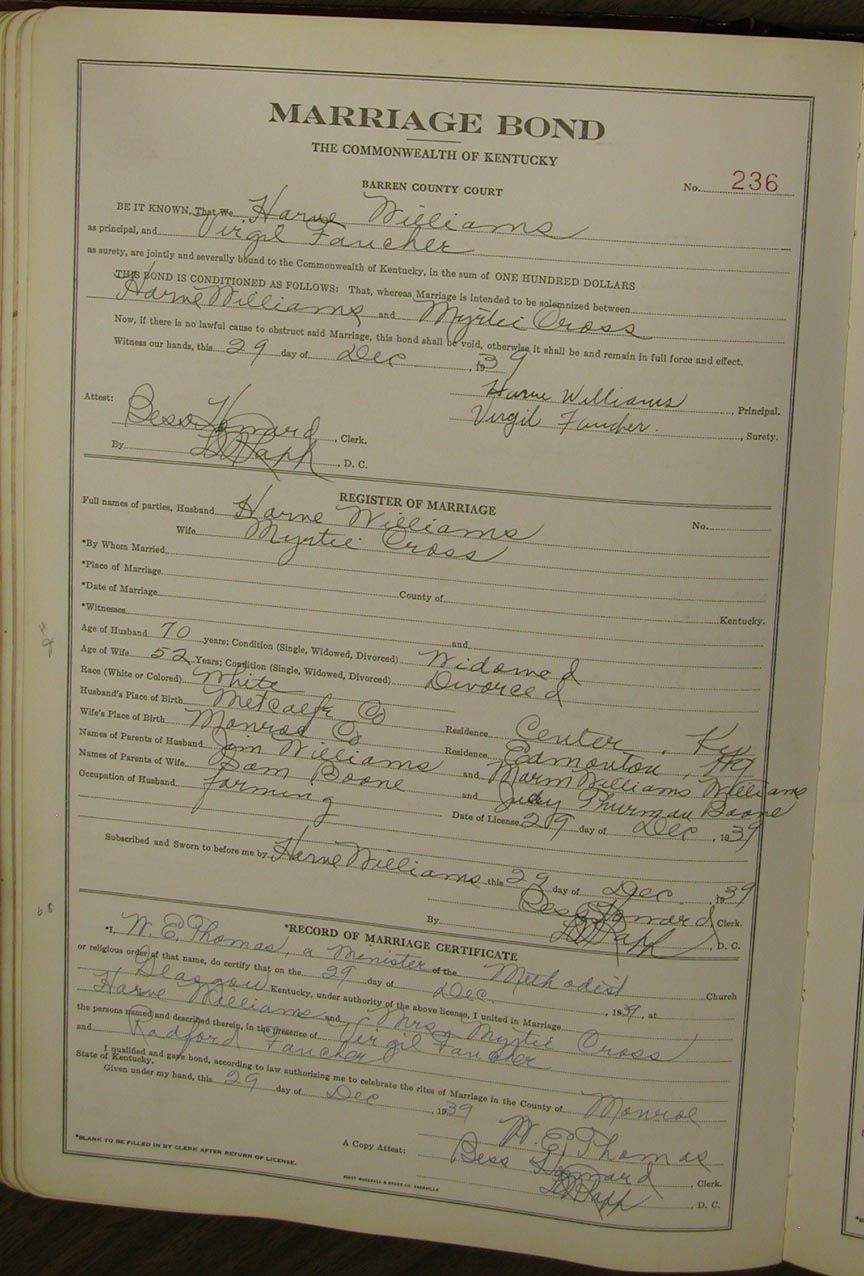 MARRIAGE BOND
THE COMMONWEALTH OF KENTUCKY
BARREN COUNTY COURT
No. 236
BE IT KNOWN, That We Harve Williams
as principal, and Virgil Faucher
as surety, are jointly and severally bound to the Commonwealth of Kentucky, in the sum of ONE HUNDRED DOLLARS
THIS BOND IS CONDITIONED AS FOLLOWS: That, whereas Marriage is intended to be solemnized between
Harve Williams and Myrtie Cross
Now, if there is no lawful cause to obstruct said Marriage, this bond shall be void, otherwise it shall be and remain in full force and effect.
Witness our hands, this 29 day of Dec, 1939
Harve Williams, Principal.
Attest:
Virgil Faucher., Surety.
Bess Howard, Clerk.
By, D. C.
REGISTER OF MARRIAGE
Full names of parties, Husband Harve Williams No.
Wife Myrtie Cross
*By Whom Married
*Place of Marriage
*Date of Marriage County of Kentucky.
*Witnesses and
Age of Husband 70 years; Condition (Single, Widowed, Divorced) Widowed
Age of Wife 52 Years; Condition (Single, Widowed, Divorced) Divorced
Race (White or Colored) White
Husband's Place of Birth Metcalfe Co Residence Center, Ky
Wife's Place of Birth Monroe Co Residence Edmonton, Ky
Names of Parents of Husband Jim Williams and Marm Williams Williams
Names of Parents of Wife Sam Boone and Judy Thurman Boone
Occupation of Husband farming Date of License 29 day of Dec, 1939
Subscribed and Sworn to before me by Harve Williams this 29 day of Dec, 1939
Bess Howard Clerk.
By, D. C.
*RECORD OF MARRIAGE CERTIFICATE
*I, W. E. Thomas, a Minister of the Methodist Church
or religious order of that name, do certify that on the 29 day of Dec., 1939, at
Glasgow Kentucky, under authority of the above license, I united in Marriage
Harve Williams and Mrs Myrtie Cross
the persons named and described therein, in the presence of Virgil Faucher
and Radford Faucher
I qualified and gave bond, according to law authorizing me to celebrate the rites of Marriage in the County of Monroe
State of Kentucky.
Given under my hand, this 29 day of Dec, 1939
W. E. Thomas
*BLANK TO BE FILLED IN BY CLERK AFTER RETURN OF LICENSE.
A Copy Attest: Bess Howard, Clerk.
, D. C.